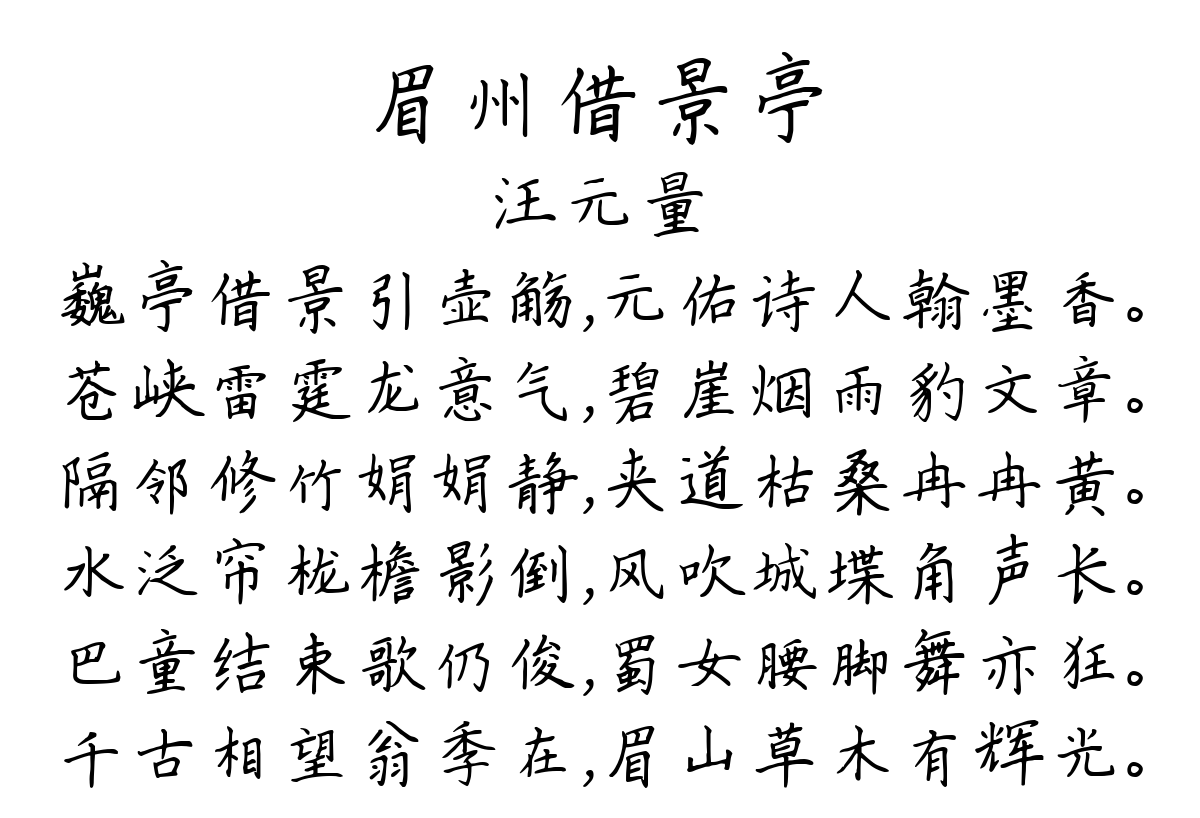 眉州借景亭
汪元量
巍亭借景引壶觞,元佑诗人翰墨香。
苍峡雷霆龙意气,碧崖烟雨豹文章。
隔邻修竹娟娟静,夹道枯桑冉冉黄。
水泛帘栊檐影倒,风吹城堞角声长。
巴童结束歌仍俊,蜀女腰脚舞亦狂。
千古相望翁季在,眉山草木有辉光。